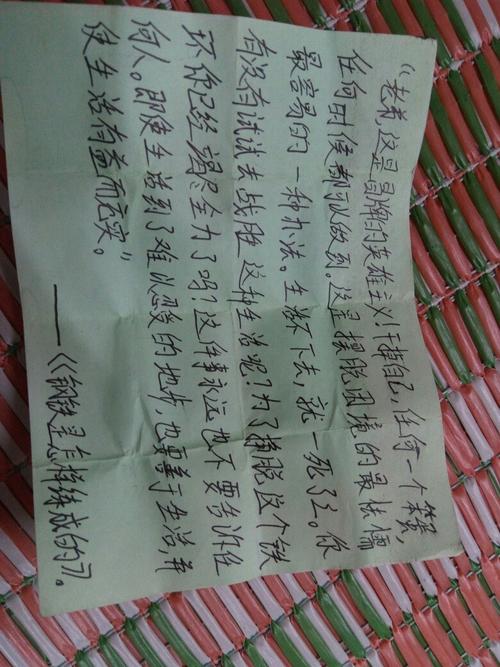 “老弟,这是冒牌的英雄主义!干掉自己,任何一个笨蛋,
任何时候都可以做到。这是摆脱困境的最怯懦
最容易的一种办法。生活不下去,就一死了之。你
有没有试试去战胜这种生活呢?为了挣脱这个铁
环你已经竭尽全力了吗?这件事永远也不要告诉任
何人。即使生活到了难以忍受的地步,也要善于生活,并
使生活有益而充实。”
——《钢铁是怎样练成的》。